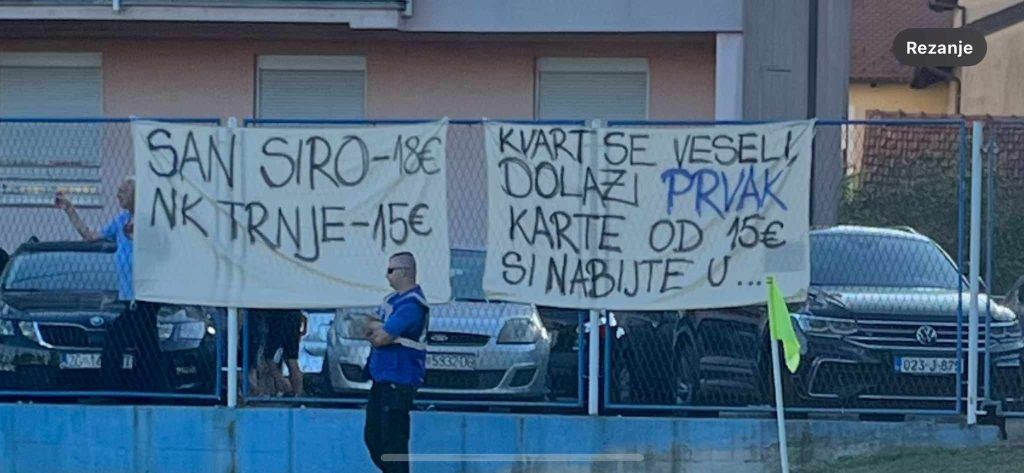 Rezanje
SAN SIRO-18€
NK TRNJE-15€
KVART SE VESELI,
DOLAZI PRVAK
KARTE OD 15€
SI NABIJTE U...